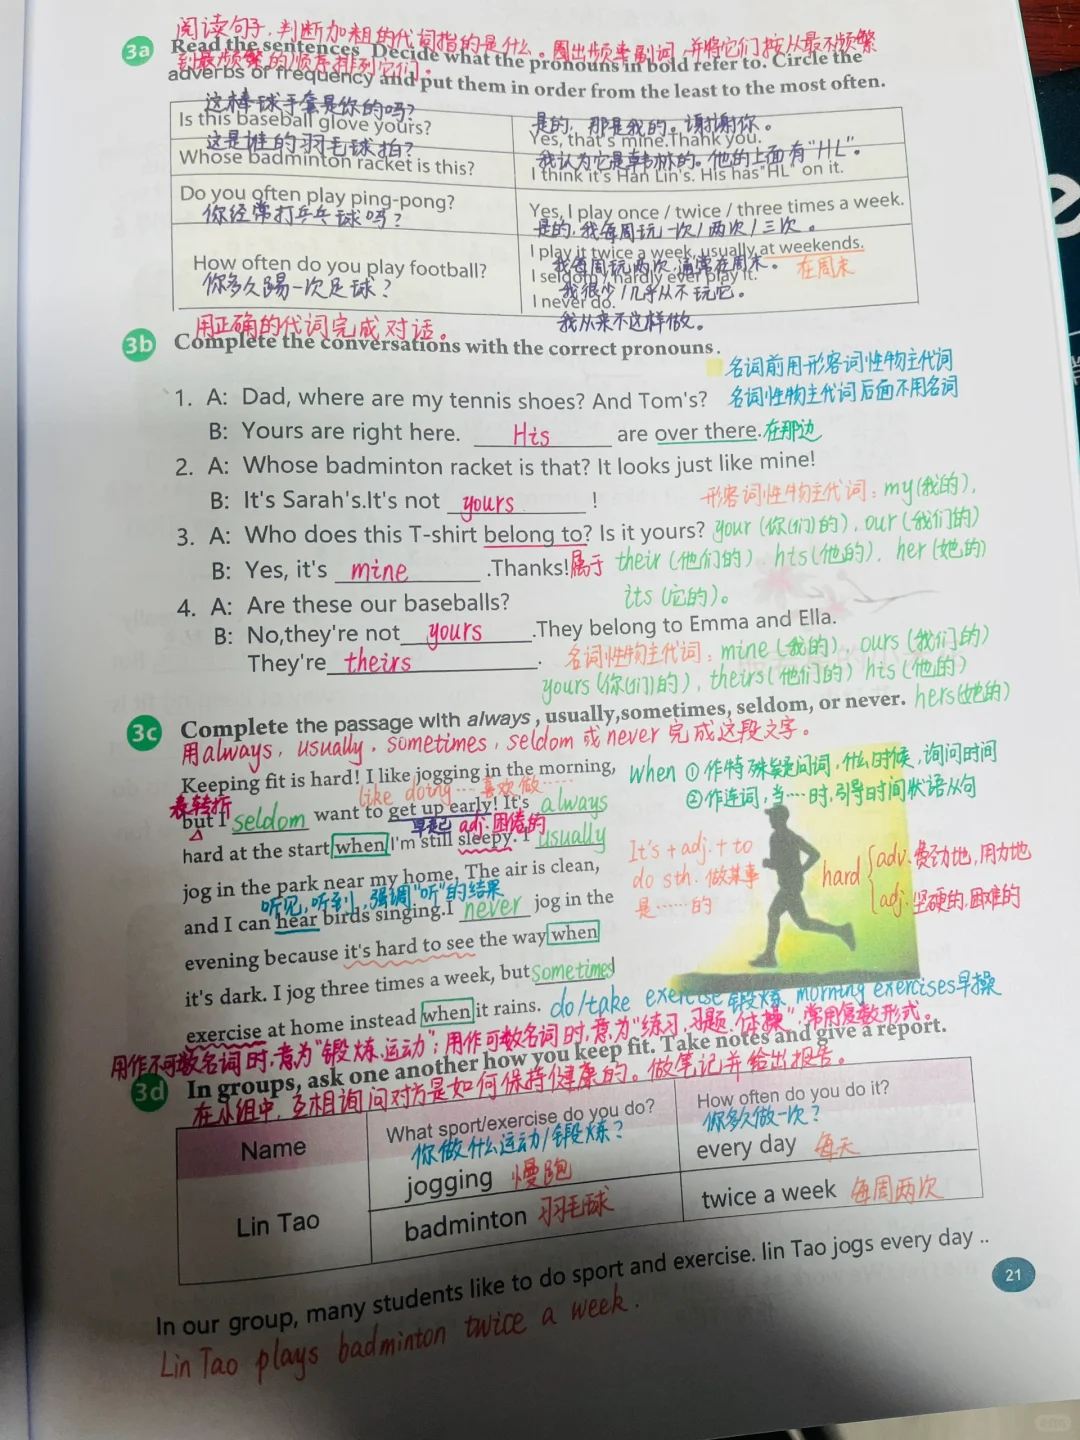 阅读句子,判断加粗的代词指的是什么。圈出频率副词,并将它们按从最不频繁
3a Read the sentences. Decide what the pronouns in bold refer to. Circle the
到最频繁的顺序排列它们。
adverbs of frequency and put them in order from the least to the most often.
这棒球手套是你的吗?
Is this baseball glove yours?
是的,那是我的。谢谢你。
Yes, that's mine.Thank you.
这是谁的羽毛球拍?
Whose badminton racket is this?
我认为它是韩林的。他的上面有"HL"。
I think it's Han Lin's. His has"HL" on it.
Do you often play ping-pong?
你经常打乒乓球吗?
Yes, I play once / twice / three times a week.
是的,我每周玩一次/两次/三次。
How often do you play football?
你多久踢一次足球?
I play it twice a week, usually at weekends.
我每周玩两次,通常在周末。 在周末
I seldom / hardly ever play it.
我很少/几乎从不玩它。
I never do.
我从来不这样做。
用正确的代词完成对话。
3b Complete the conversations with the correct pronouns.
名词前用形容词性物主代词
名词性物主代词后面不用名词
1. A: Dad, where are my tennis shoes? And Tom's?
B: Yours are right here. His are over there.在那边
2. A: Whose badminton racket is that? It looks just like mine!
B: It's Sarah's.It's not yours !
形容词性物主代词:my(我的),
3. A: Who does this T-shirt belong to? Is it yours? your(你(们)的),our(我们的)
B: Yes, it's mine .Thanks!属于 their(他们的),his(他的),her(她的)
its(它的)。
4. A: Are these our baseballs?
B: No,they're not yours .They belong to Emma and Ella.
They're theirs .
名词性物主代词:mine(我的),ours(我们的)
yours(你(们)的),theirs(他们的)his(他的)
hers(她的)
3c Complete the passage with always, usually,sometimes, seldom, or never.
用always,usually,sometimes,seldom或never完成这段文字。
Keeping fit is hard! I like jogging in the morning,
表转折 like doing…喜欢做……
but I seldom want to get up early! It's always
早起 adj.困倦的
hard at the start when I'm still sleepy. I usually
jog in the park near my home. The air is clean,
听见,听到,强调"听"的结果
and I can hear birds singing.I never jog in the
evening because it's hard to see the way when
it's dark. I jog three times a week, but sometimes
exercise at home instead when it rains.
when ①作特殊疑问词,什么时候,询问时间
②作连词,当…时,引导时间状语从句
It's + adj. + to
do sth. 做某事
是……的
hard adv.费劲地,用力地
adj.坚硬的,困难的
do/take exercise 锻炼 morning exercises早操
用作不可数名词时,意为"锻炼,运动";用作可数名词时,意为"练习,习题,体操",常用复数形式。
3d In groups, ask one another how you keep fit. Take notes and give a report.
在小组中,互相询问对方是如何保持健康的。做笔记并给出报告。
Name
What sport/exercise do you do?
你做什么运动/锻炼?
How often do you do it?
你多久做一次?
Lin Tao
jogging 慢跑
every day 每天
badminton 羽毛球
twice a week 每周两次
In our group, many students like to do sport and exercise. lin Tao jogs every day ..
Lin Tao plays badminton twice a week.
21